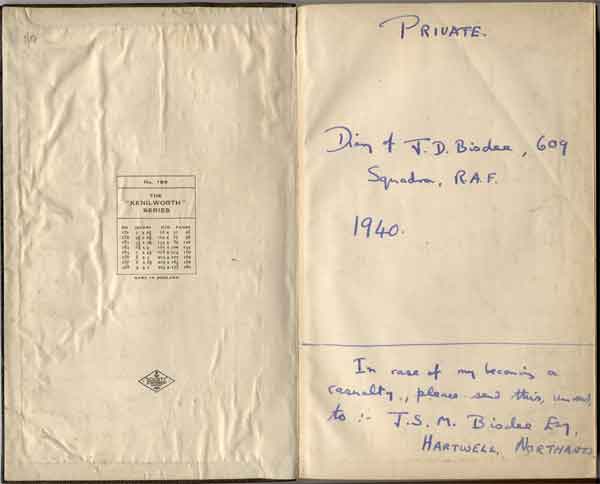 No. 188
THE
"KENILWORTH"
SERIES
MADE IN ENGLAND
PRIVATE.
Diary of J. D. Bisdee, 609
Squadron, R.A.F.
1940.
In case of my becoming a
casualty, please send this, unread,
to :- J.S.M. Bisdee Esq,
HARTWELL, NORTHANTS